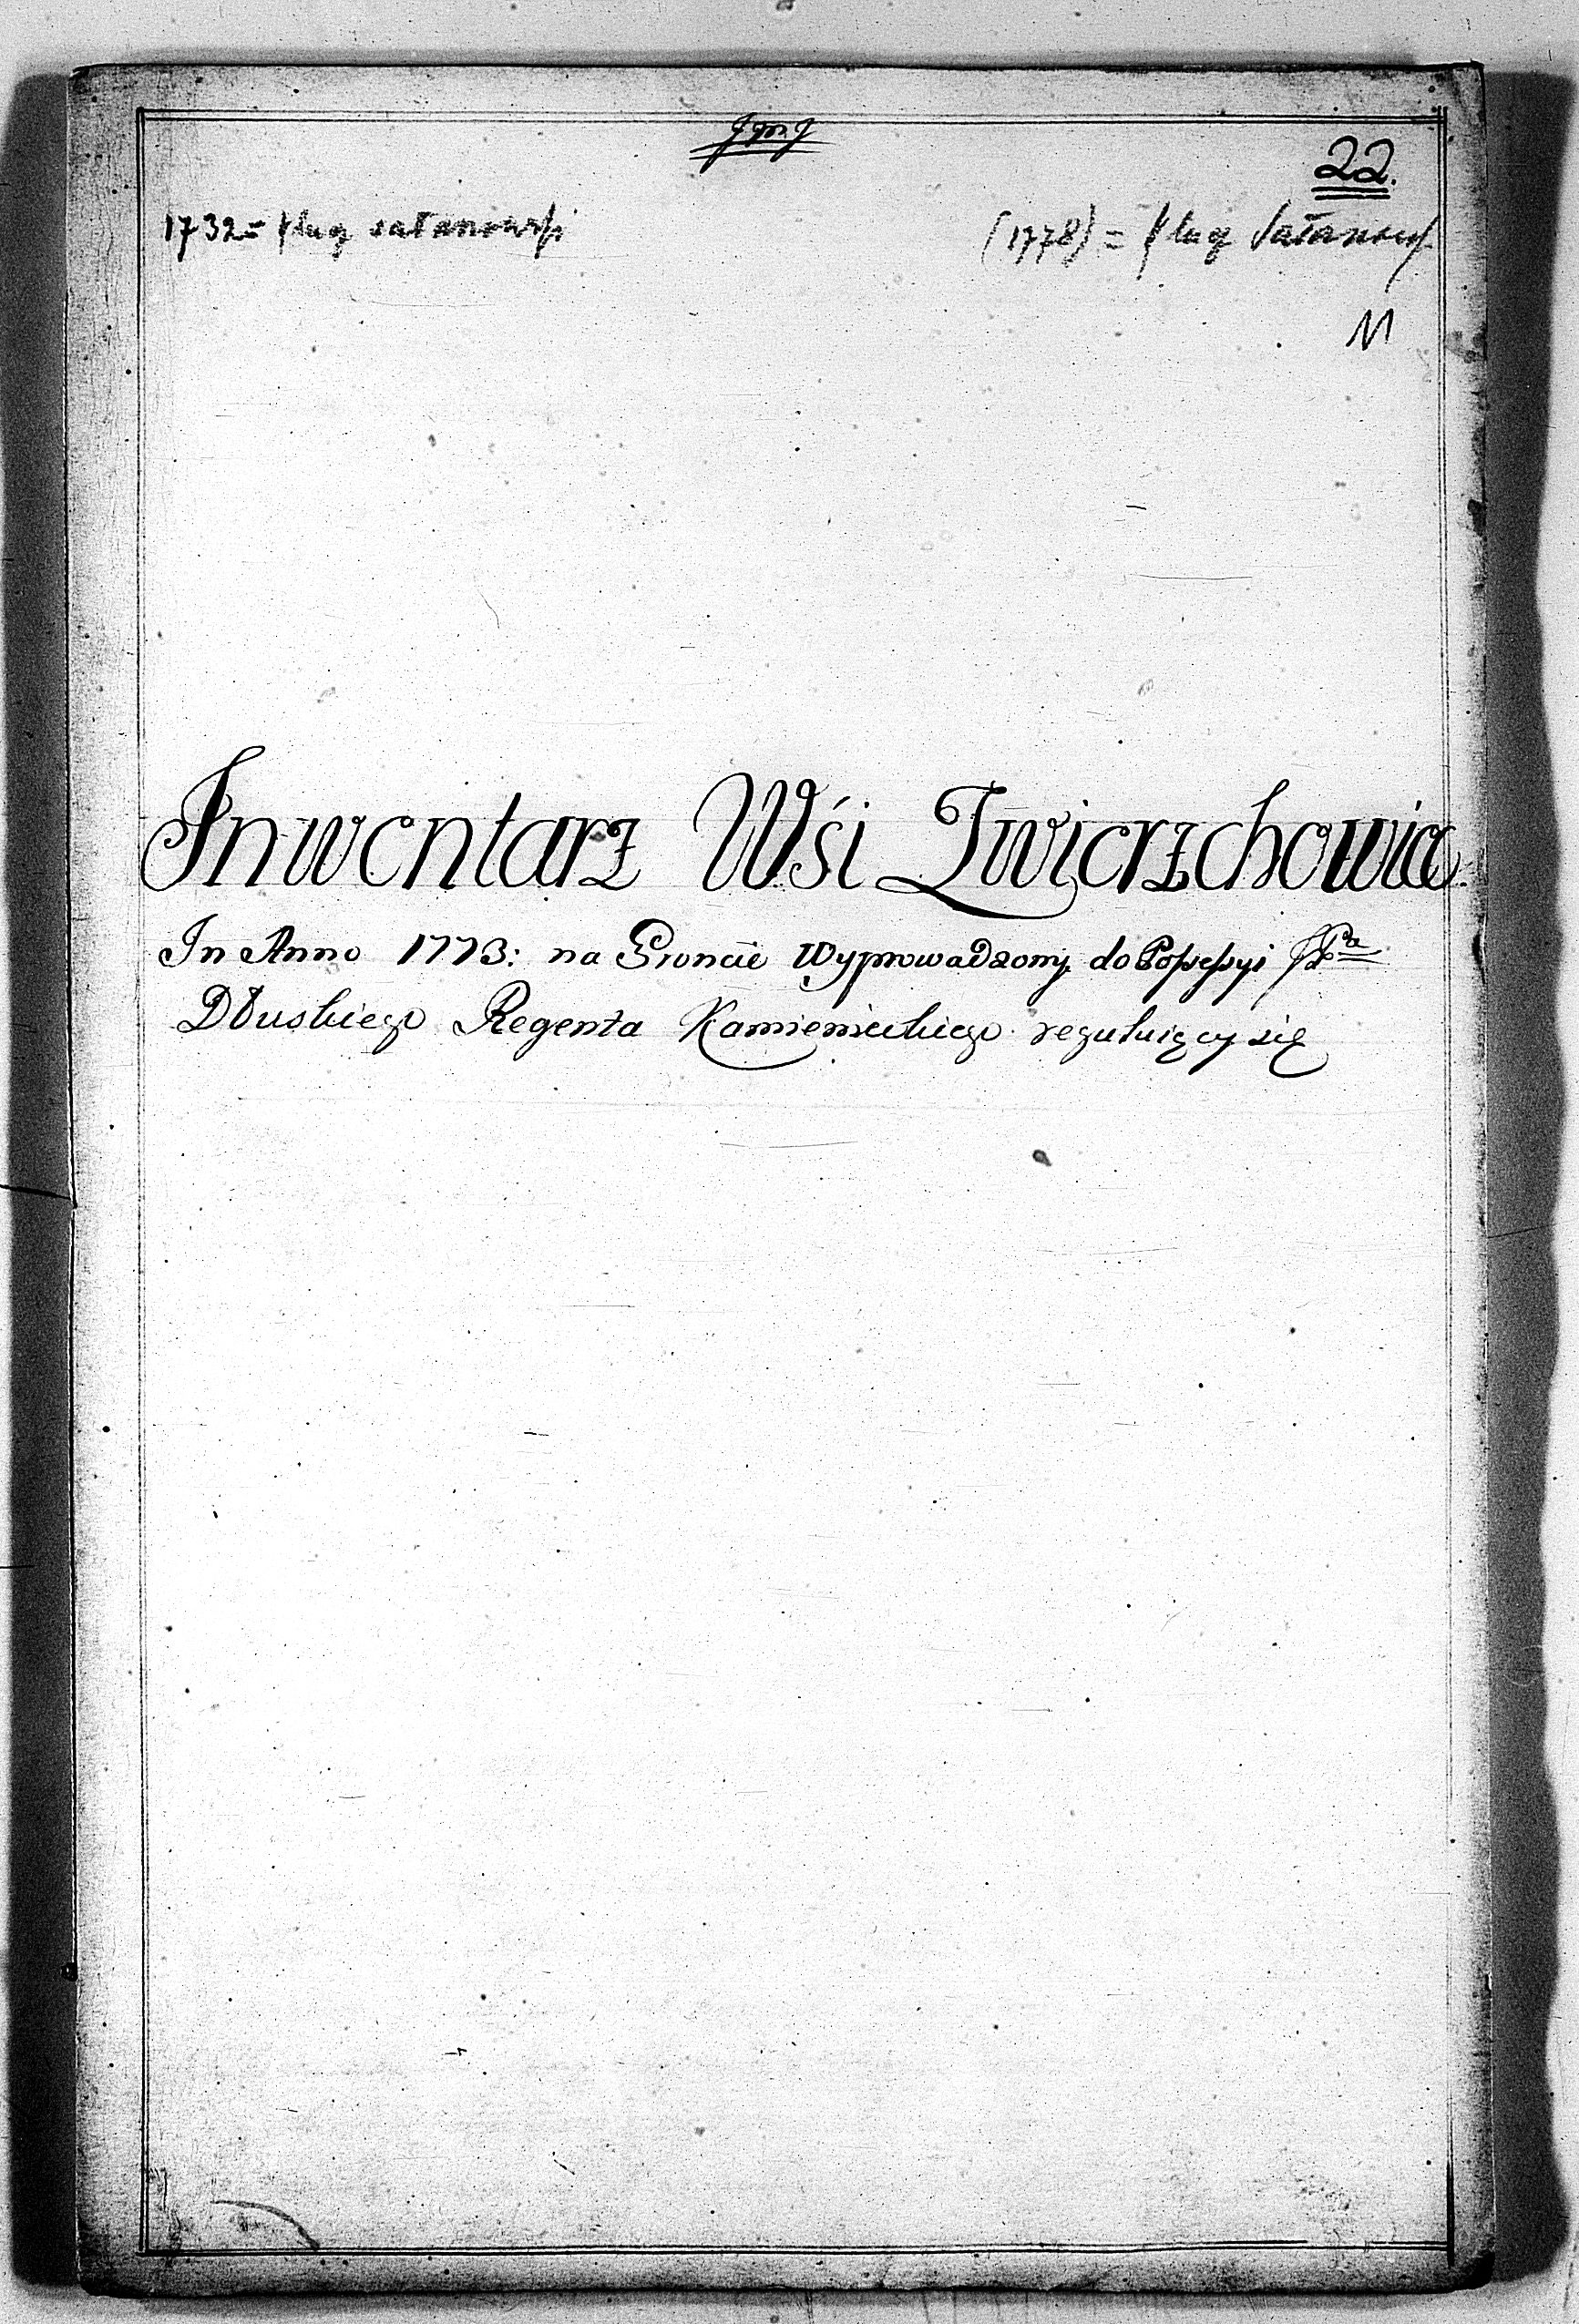 JMJ
22.
1732 = klucz satanowski
(1778) = klucz Satanow
Inwentarz Wśi Zwierzchowia
In Anno 1773: na Gruncie Wyprowadzony do Possessyi
Dłuskiego Regenta Kamienieckiego reguluiący się